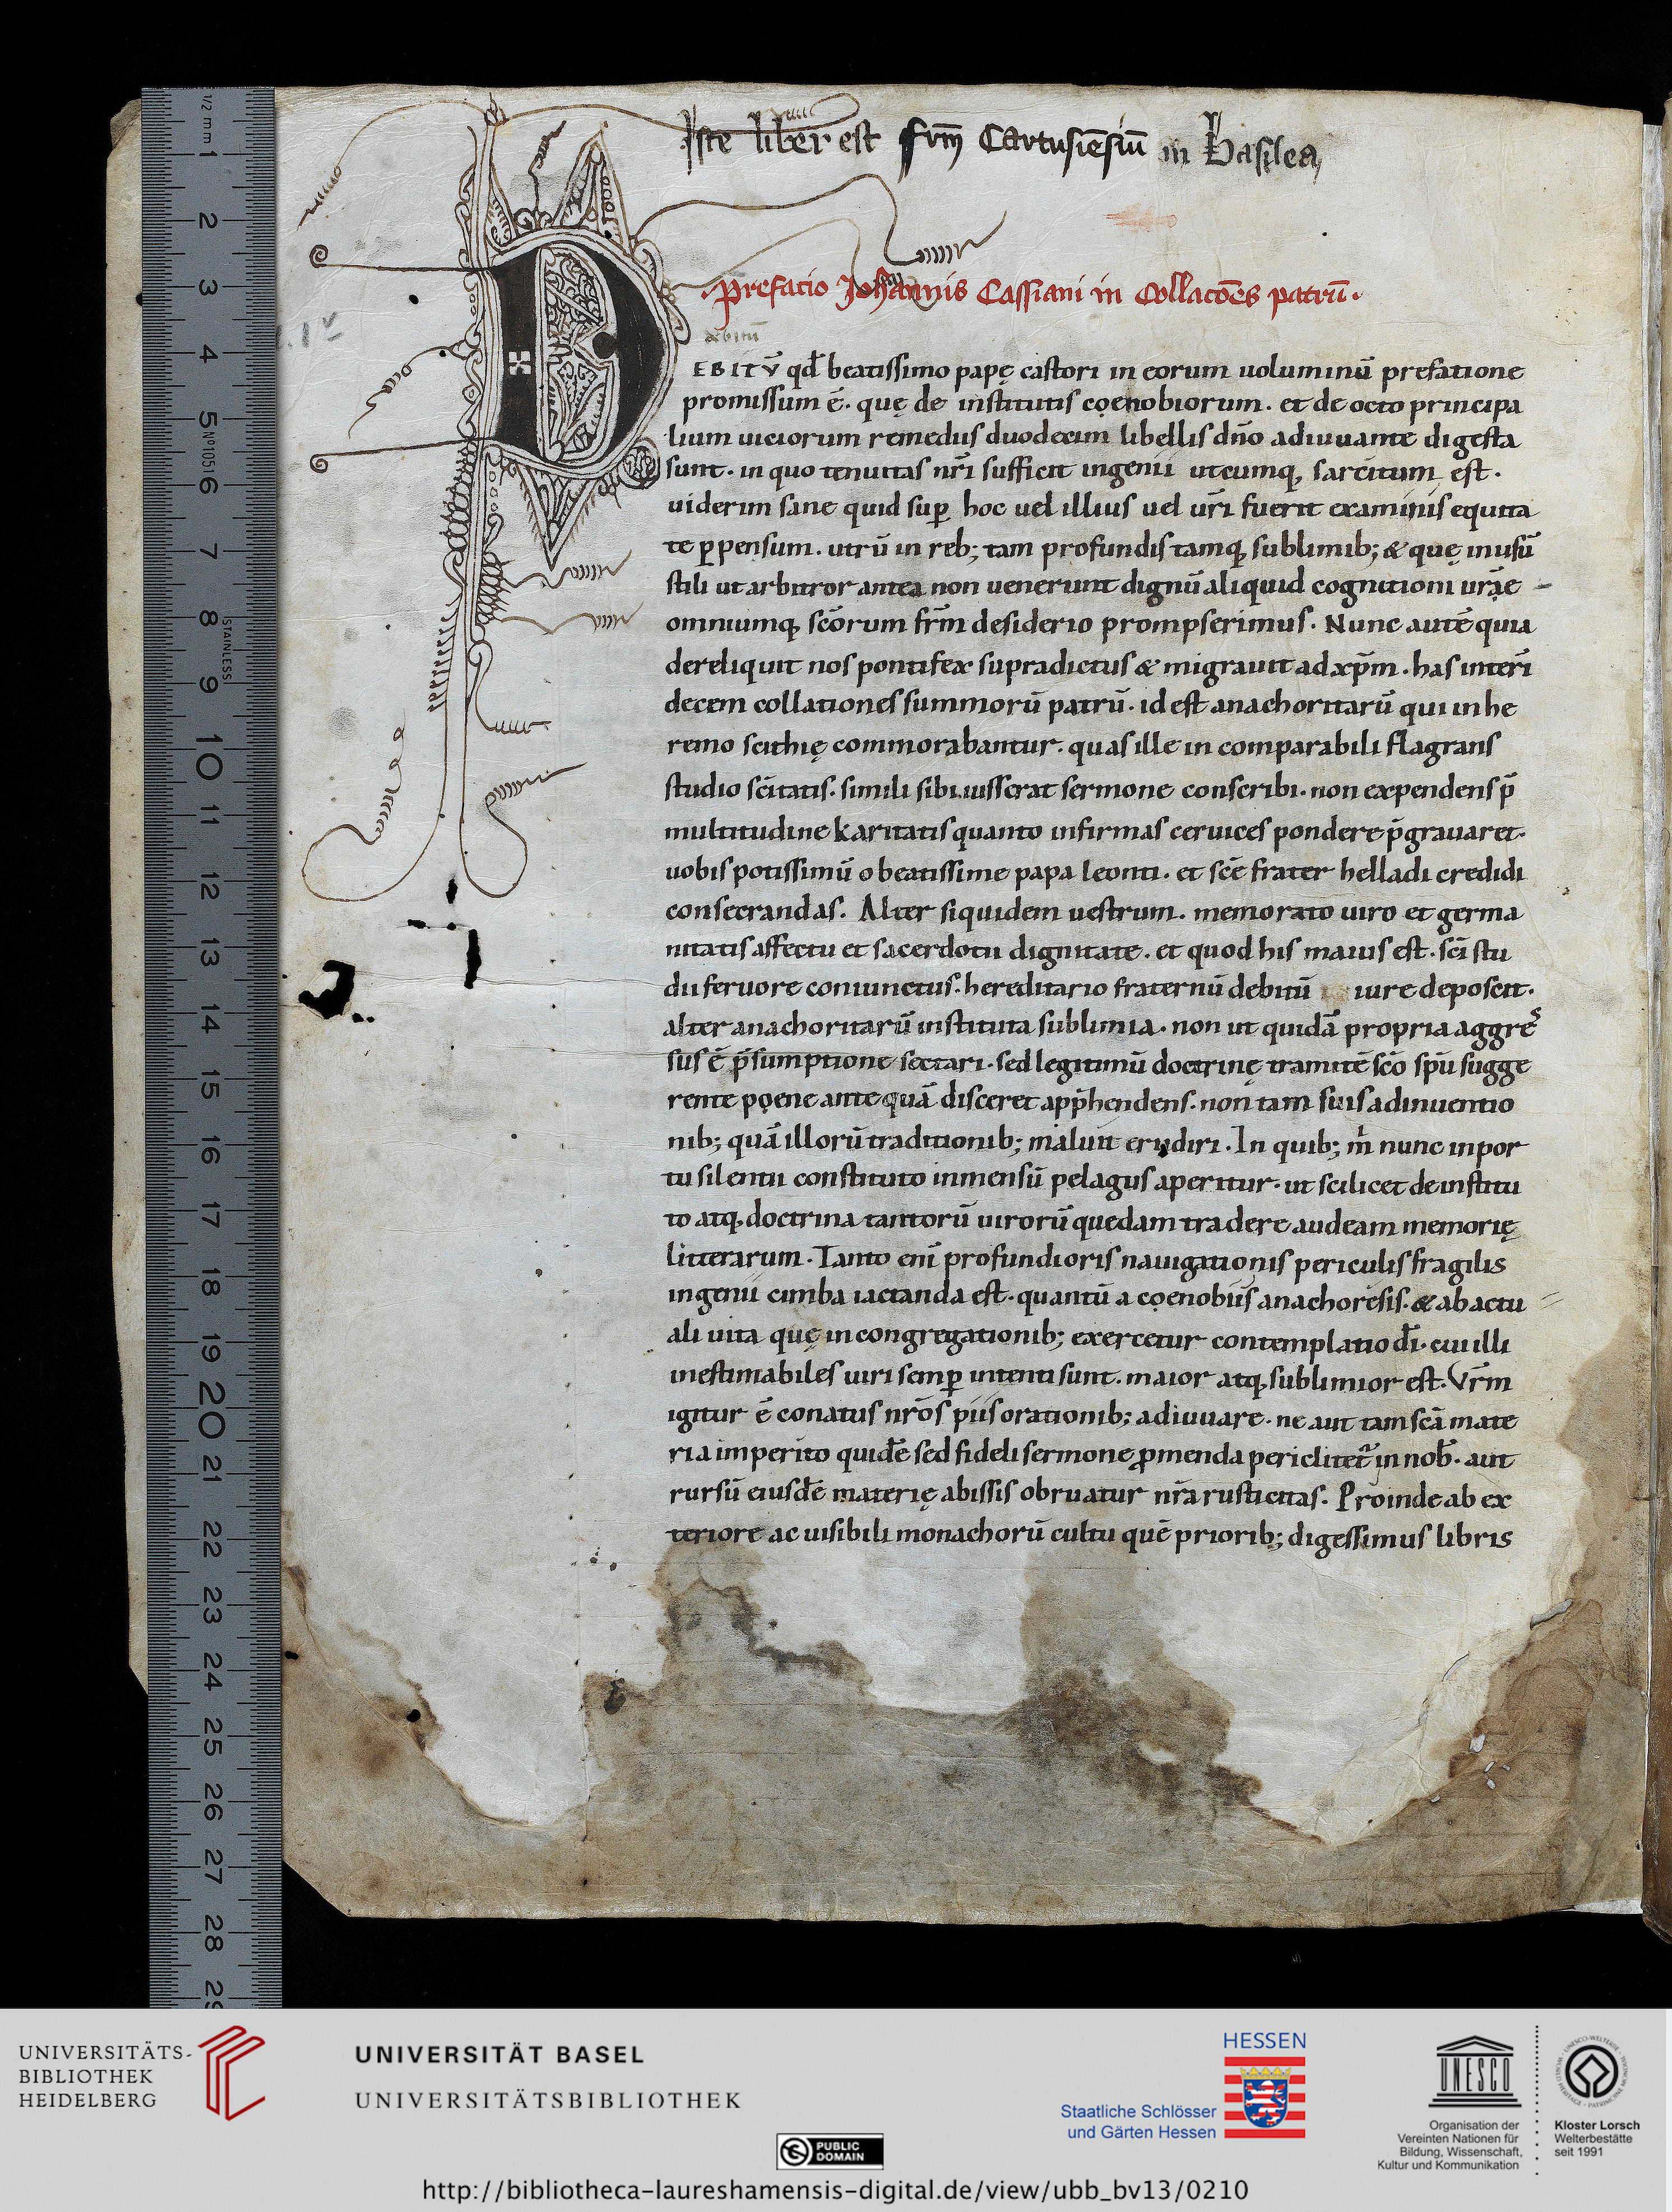 Iste liber est frm̄ Cartusiēsiū in Basilea
·Prefacio Johannis Cassiani in Collacōēs patrū·
debitū
DEBITV̄ qd̄ beatissimo papę castori in eorum uoluminū prefatione
promissum ē. quę de institutis coenobiorum. et de octo principa
lium uiciorum remediis duodecim libellis dn̄o adiuuante digesta
sunt. in quo tenuitas nr̄i sufficit ingenii utcumq; sarcitum est.
uiderim sane quid sup̱ hoc uel illius uel ur̄i fuerit examinis equita
te p̱pensum. utrū in reb; tam profundis tamq; sublimib; & quę in usū
stili ut arbitror antea non uenerunt dignū aliquid cognitioni urāe
omniumq; sc̄orum frm̄ desiderio prompserimus. Nunc autē quia
dereliquit nos pontifex supradictus & migrauit ad xp̄m. has interī
decem collationes summorū patrū. id est anachoritarū qui in he
remo scithię commorabantur. quas ille in comparabili flagrans
studio sc̄itatis. simili sibi iusserat sermone conscribi. non expendens p̄
multitudine karitatis quanto infirmas ceruices pondere p̄grauaret.
uobis potissimū o beatissime papa leonti. et sc̄e frater helladi credidi
consecrandas. Alter siquidem uestrum. memorato uiro et germa
nitatis affectu et sacerdotii dignitate. et quod his maius est. sc̄i stu
dii feruore coniunctus. hereditario fraternū debitū iure deposcit.
alter anachoritarū instituta sublimia. non ut quidā propria aggre
sus ē p̄sumptione sectari. sed legitimū doctrinę tramitē sc̄o sp̄u sugge
rente poene ante quā disceret app̄hendens. non tam suis adinuentio
nib; quā illorū traditionib; maluit erudiri. In quib; m̄ nunc in por
tu silentii constituto inmensū pelagus aperitur. ut scilicet de institu
to atq; doctrina tantorū uirorū quedam tradere audeam memorię
litterarum. Tanto enī profundioris nauigationis periculis fragilis
ingenii cimba iactanda est. quantū a coenobiis anachoresis. & ab actu
ali uita quę in congregationib; exercetur contemplatio dī. cui illi
inestimabiles uiri semp̱ intenti sunt. maior atq; sublimior est. Vr̄m
igitur ē conatus nrōs piis orationib; adiuuare. ne aut tam sc̄a mate
ria imperito quidē sed fideli sermone ꝓmenda periclitet᷑ in nob̄. aut
rursū eiusdē materię abissis obruatur nr̄a rusticitas. Proinde ab ex
teriore ac uisibili monachorū cultu quē priorib; digessimus libris
1/2 mm
1
2
3
4
5
6
7
8
9
10
11
12
13
14
15
16
17
18
19
20
21
22
23
24
25
26
27
28
Nº 10510
STAINLESS
UNIVERSITÄTS-
BIBLIOTHEK
HEIDELBERG
UNIVERSITÄT BASEL
UNIVERSITÄTSBIBLIOTHEK
PUBLIC
DOMAIN
HESSEN
Staatliche Schlösser
und Gärten Hessen
UNESCO
Organisation der
Vereinten Nationen für
Bildung, Wissenschaft,
Kultur und Kommunikation
Kloster Lorsch
Welterbestätte
seit 1991
http://bibliotheca-laureshamensis-digital.de/view/ubb_bv13/0210